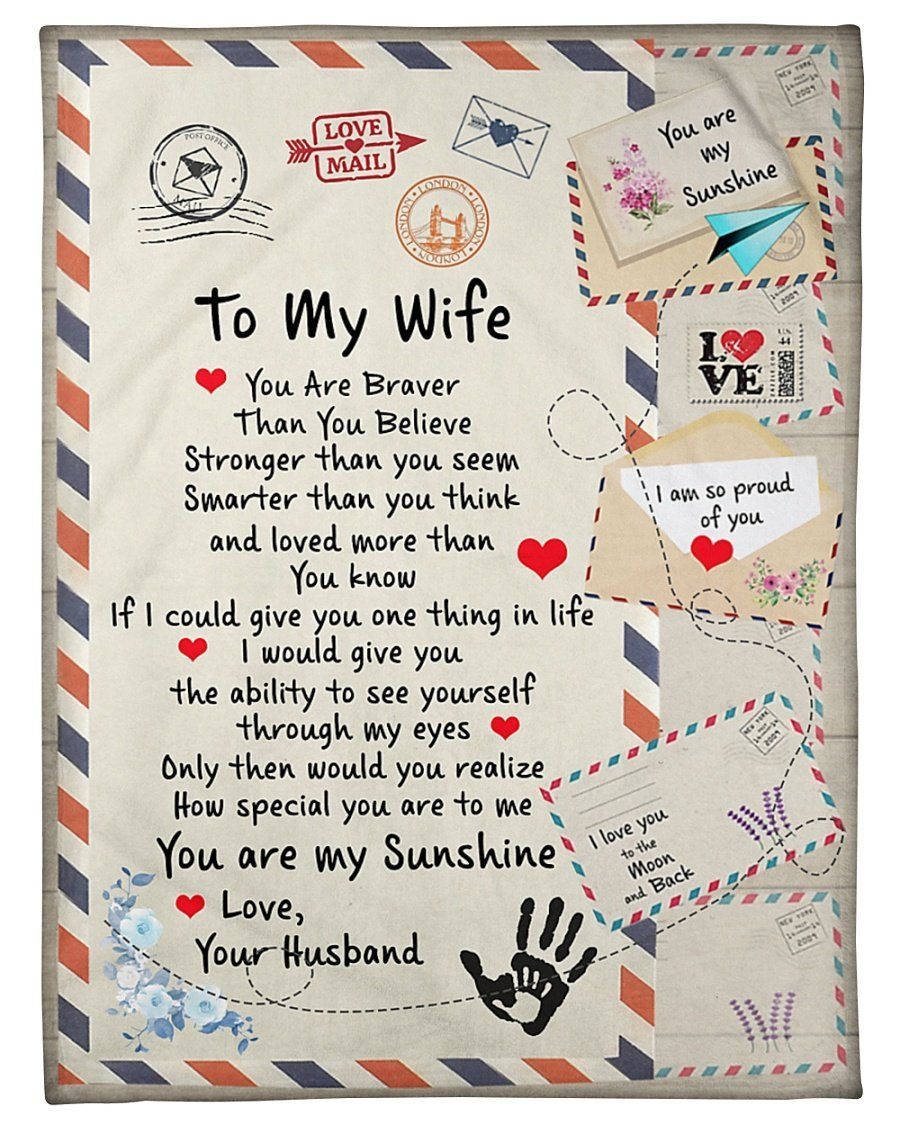 POST OFFICE
MAIL
LOVE
MAIL
LONDON · LONDON · LONDON · LONDON
To My Wife
You Are Braver
Than You Believe
Stronger than you seem
Smarter than you think
and loved more than
You know
If I could give you one thing in life
I would give you
the ability to see yourself
through my eyes
Only then would you realize
How special you are to me
You are my Sunshine
Love,
Your Husband
NEW YORK
2009
You are
my
Sunshine
2009
LOVE
U.S.
44
I am so proud
of you
NEW YORK
2009
I love you
to the
Moon
and Back
NEW YORK
2009